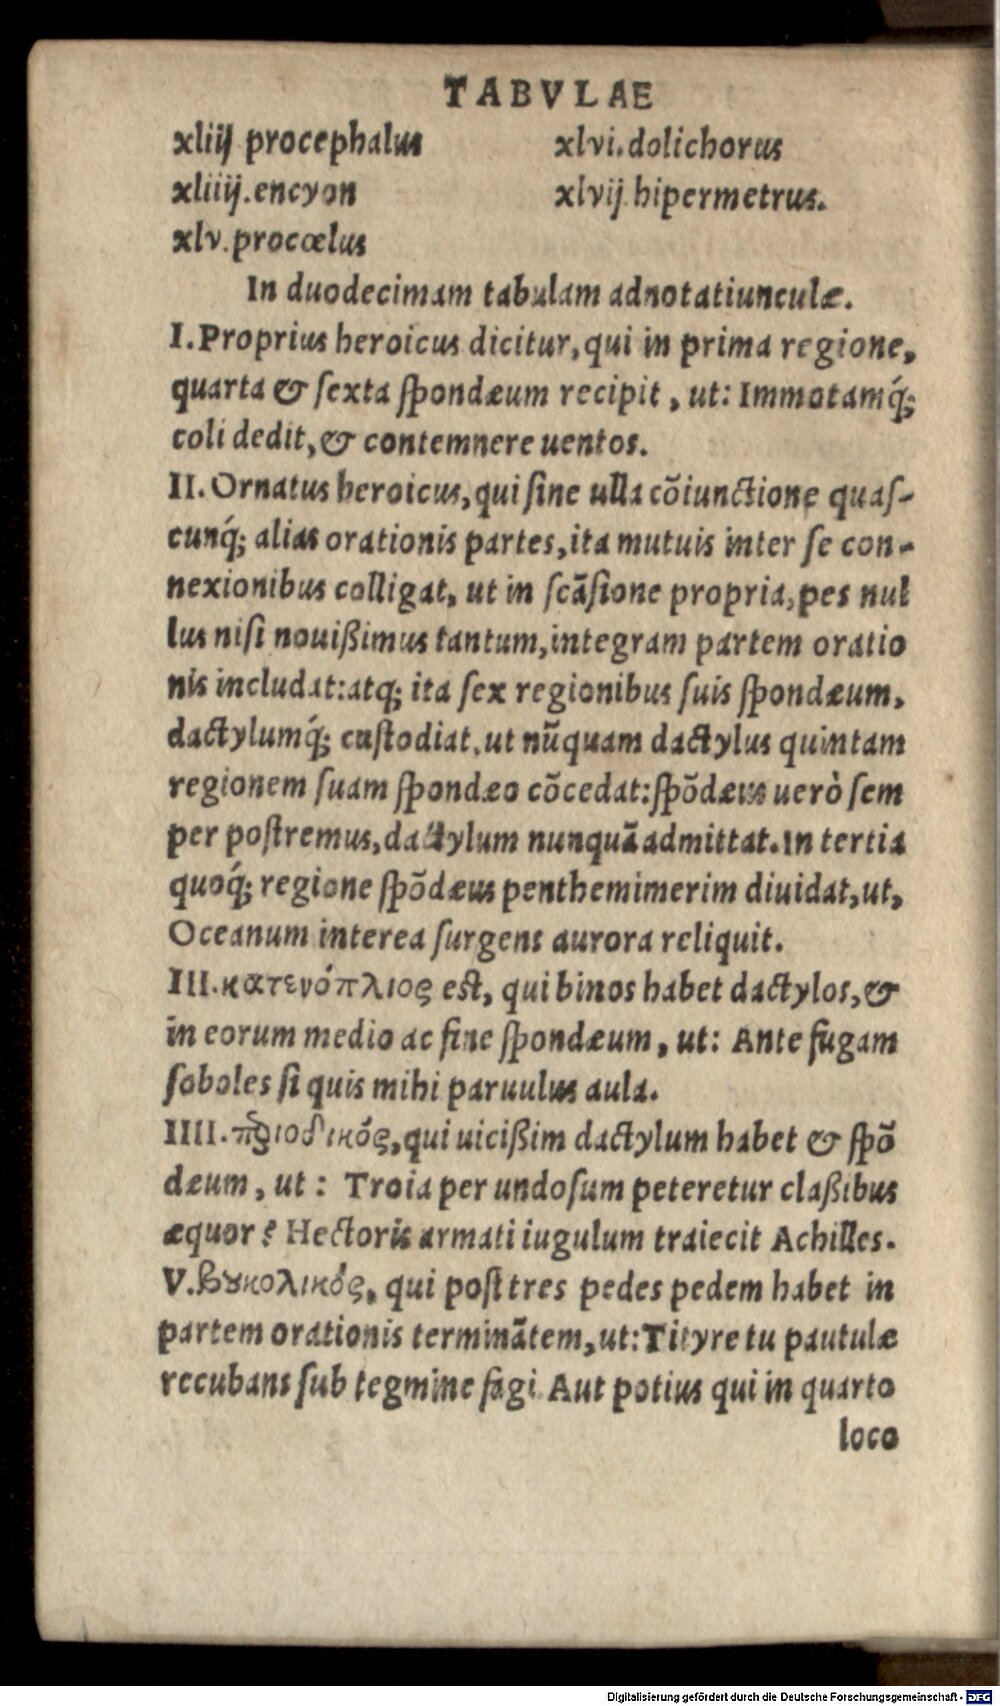 TABVLAE
xliij procephalus
xliiij. encyon
xlv. procœlus
xlvi. dolichorus
xlvij hipermetrus.
In duodecimam tabulam adnotatiunculæ.
I. Proprius heroicus dicitur, qui in prima regione,
quarta & ſexta ſpondæum recipit, ut: Immotamq́;
coli dedit, & contemnere uentos.
II. Ornatus heroicus, qui ſine ulla cõiunctione quaſ-
cunq́; alias orationis partes, ita mutuis inter ſe con-
nexionibus colligat, ut in ſcãſione propria, pes nul
lus niſi nouißimus tantum, integram partem oratio
nis includat: atq; ita ſex regionibus ſuis ſpondæum,
dactylumq́; cuſtodiat, ut nũquam dactylus quintam
regionem ſuam ſpondæo cõcedat: ſpõdæus uerò ſem
per poſtremus, dactylum nunquã admittat. In tertia
quoq́; regione ſpõdæus penthemimerim diuidat, ut,
Oceanum interea ſurgens aurora reliquit.
III. κατενόπλιος eſt, qui binos habet dactylos, &
in eorum medio ac fine ſpondæum, ut: Ante fugam
ſoboles ſi quis mihi paruulus aula.
IIII. περιοδικός, qui uicißim dactylum habet & ſpõ
dæum, ut: Troia per undoſum peteretur claßibus
æquor? Hectoris armati iugulum traiecit Achilles.
V. βουκολικός, qui poſt tres pedes pedem habet in
partem orationis terminãtem, ut: Tityre tu pautulæ
recubans ſub tegmine fagi Aut potius qui in quarto
loco
Digitalisierung gefördert durch die Deutsche Forschungsgemeinschaft - DFG